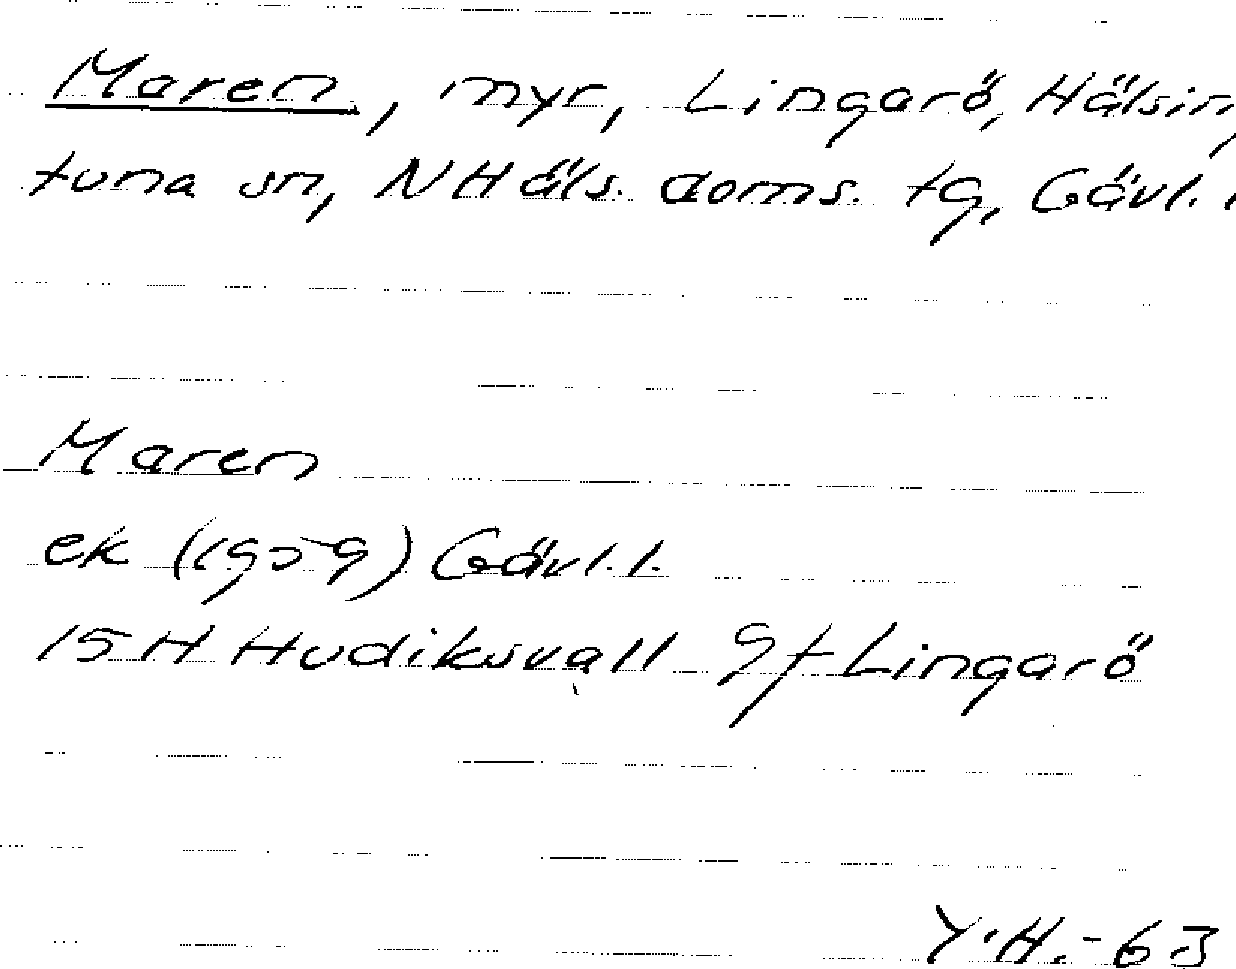 Maren, myr, Lingarö, Hälsing
tuna sn, NHäls. doms. tg, Gävl. l
Maren
ek (1959) Gävl. l.
15H Hudiksvall 9f Lingarö
Y.H.-63